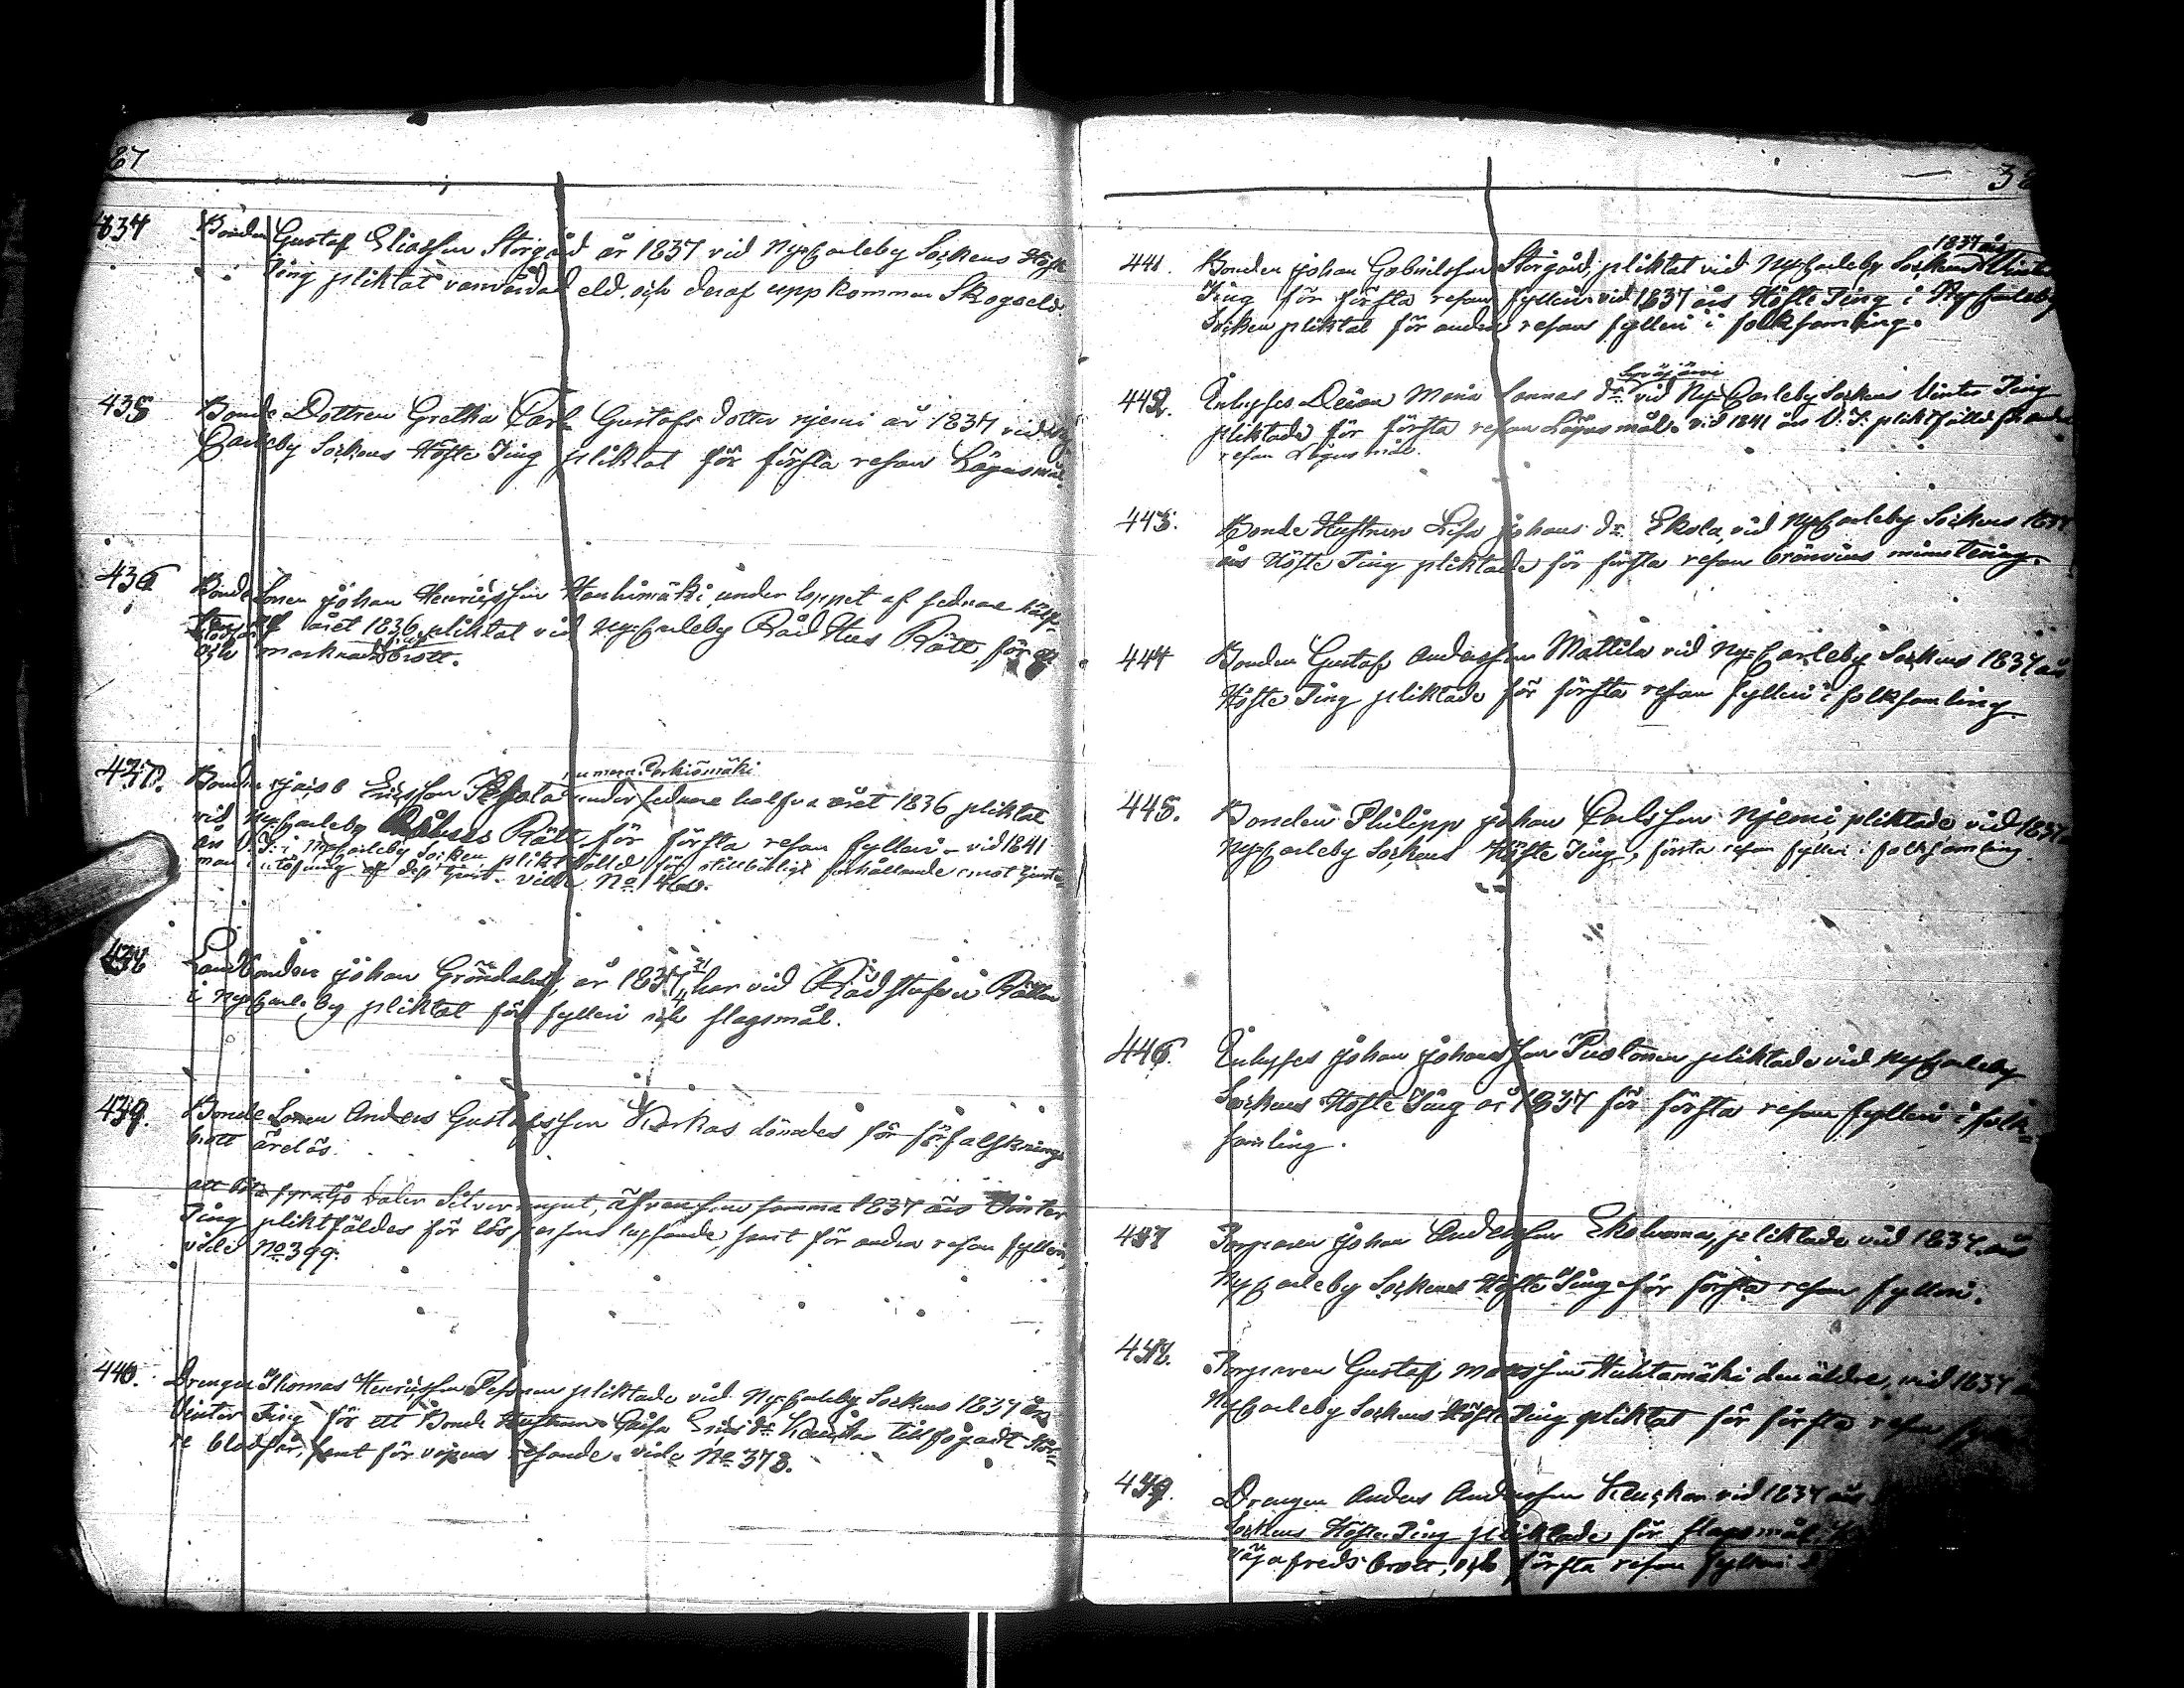 37
434 Bonden Gustaf Eliasson Storgård år 1837 vid NyCarleby Sockens Höste
Ting pliktat vanvårdad eld, och deraf uppkommen Skogseld.
435 Bonde Dottren Gretha Carl Gustafs dotter njemi år 1837 vid Ny
Carleby Sockens Höste Ting pliktat för första resan Lägersmål.
436 Bonde Sonen Johan Henricsson Hanhimäki, under loppet af sednare hälf-
ten af året 1836 pliktat vid NyCarleby Råd Hus Rätt för
och marknads brott.
numera Porkiomäki
437. Bonden Jacob Ericsson under sednare halfva året 1836 pliktat
vid NyCarleby Rådhus Rätt för första resan fylleri - vid 1841
års V.T. i NyCarleby Socken pliktfälld för otillbörligt förhållande emot tjenste-
man i utöfning af dess tjenst. vide No 460.
438 Landbonden Johan Gröndahl, år 1837 21/4 har vid Rådstufvu Rätten
i NyCarleby pliktat för fylleri och slagsmål.
439. Bonde Sonen Anders Gustafsson Kerkas dömdes för förfalsknings
brott ärelös.
att böta fyratio daler Silvermynt, äfvensom samma 1837 års Vinter
Ting pliktfäldes för lös persons hysande, samt för andra resan fylleri,
vide No 399.
440. Drengen Thomas Henricsson pliktade vid NyCarleby Sockens 1837 års
Vinter Ting för ett Bonde Hustrun Caisa Erics dr tillfogadt stör-
re blodsår, samt för resande. vide No 378.
38
1837 års
441. Bonden Johan Gabrielsson Storgård, pliktat vid NyCarleby Sockens Vinter
Ting för första resan fylleri vid 1837 års Höste Ting i NyCarleby
Socken pliktat för andra resan fylleri i folksamling.
442. Inhyses Maria dr vid NyCarleby Sockens Vinter Ting
pliktade för första resan Lägersmål. vid 1841 års V.T. pliktfälld för andra
resan Lägersmål.
443. Bonde Hustrun Lisa Johans dr Ekola, vid NyCarleby Sockens 1837
års Höste Ting pliktade för första resan bränvins minutering.
444 Bonden Gustaf Andersson Mattila vid NyCarleby Sockens 1837 års
Höste Ting pliktade för första resan fylleri i folksamling.
445. Bonden Philipp Johan Carlsson Njemi, pliktade vid 1837
NyCarleby Sockens Höste Ting, första resan fylleri i folksamling.
446. Inhyses Johan Johansson pliktade vid NyCarleby
Sockens Höste Ting år 1837 för första resan fylleri i folk-
samling.
437 Torparen Johan Andersson Ekoluoma, pliktade vid 1837 års
NyCarleby Sockens Höste Ting för första resan fylleri.
438. Torparen Gustaf Matsson Huhtamäki den äldre, vid 1837
NyCarleby Sockens Höste Ting pliktat för första resan
439. Drengen Anders Andersson vid 1837 års
Sockens Höste Ting pliktade för slagsmål
freds brott, och första resan fylleri